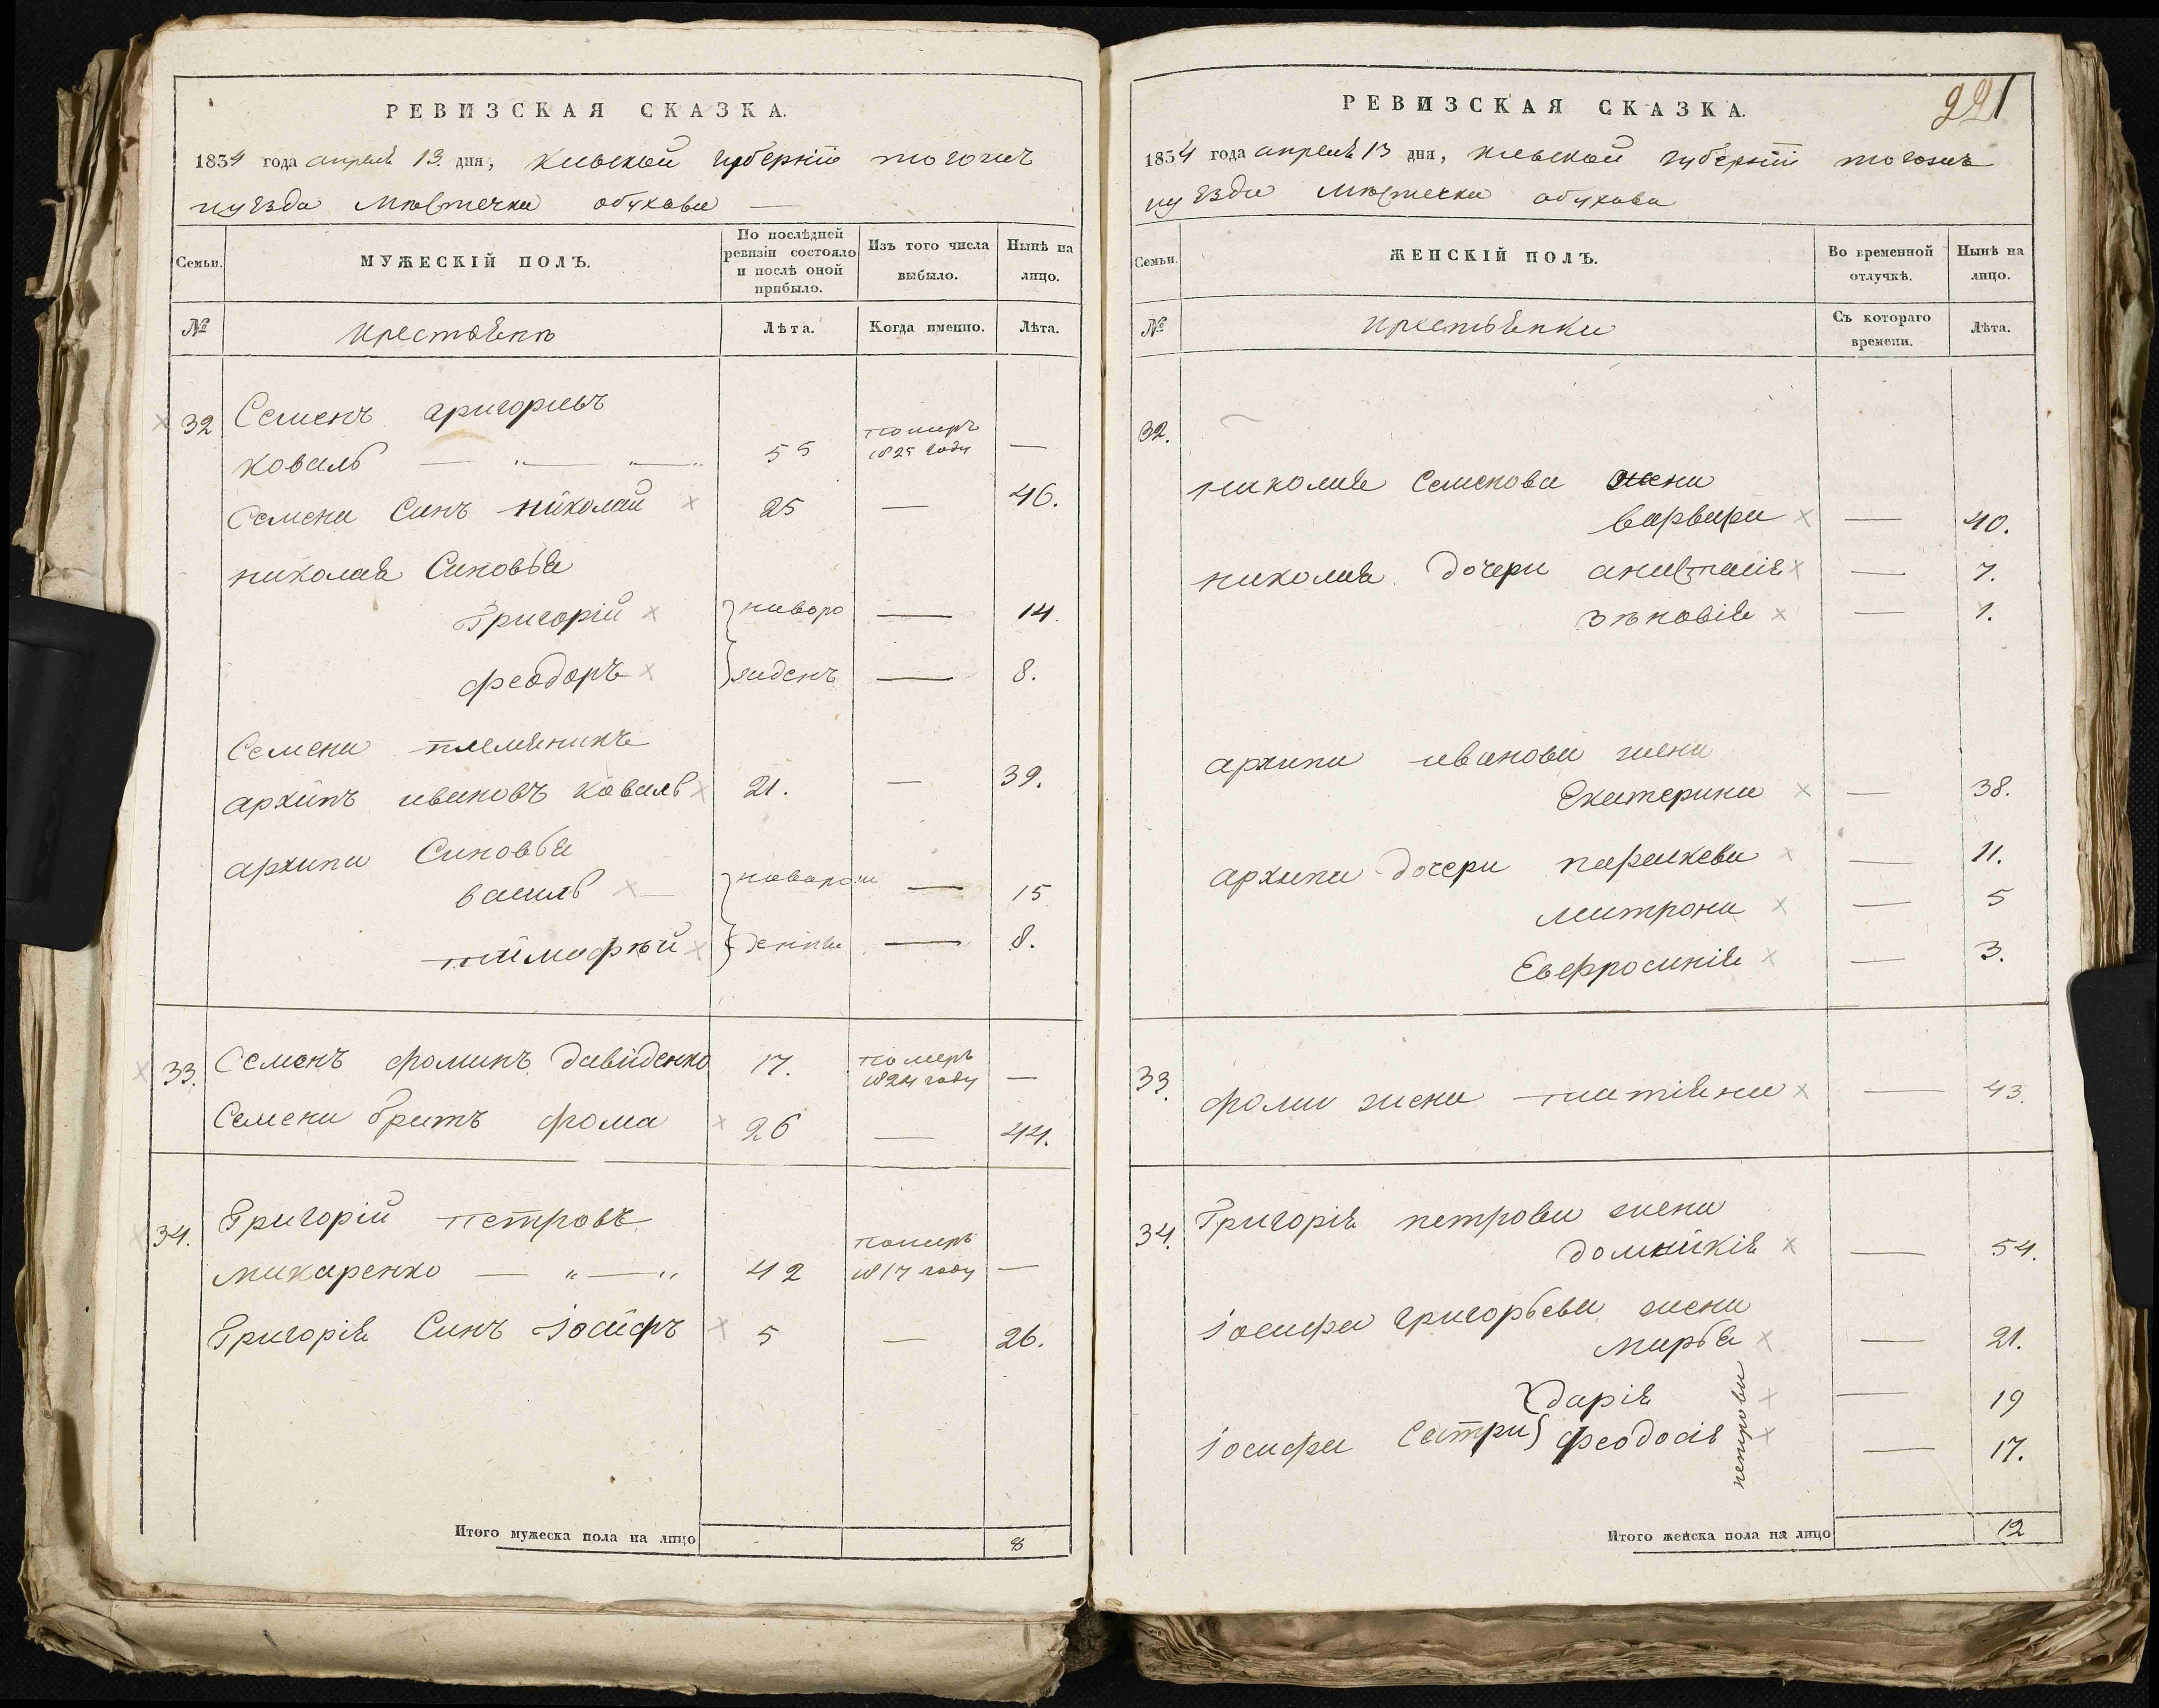 РЕВИЗСКАЯ СКАЗКА.
1834 года апреля 13 дня, киевской губернии того жъ
уезда Мѣстечка обухова —
Семьи.
МУЖЕСКІЙ ПОЛЪ.
По послѣдней ревизіи состояло и послѣ оной прибыло.
Изъ того числа выбыло.
Нынѣ на лицо.
№
крестьяне
Лѣта.
Когда именно.
Лѣта.
32 Семенъ григорьевъ
коваль — „ — „ — „ 55 померъ 1825 году —
Семена Синъ николай 25 — 46.
николая Синовья
Григорій } новоро — 14.
феодоръ } жденъ — 8.
Семена племянникъ
архипъ ивановъ коваль 21. — 39.
архипа Синовья
василь } новорож — 15
тимофѣй } — 8.
33. Семенъ фоминъ давиденко 17. померъ 1824 году —
Семена братъ фома 26 — 44.
34. Григорій петровъ
макаренко — „ — „ 42 померъ 1817 году —
Григорія Синъ іосифъ 5 — 26.
Итого мужеска пола на лицо 8
221
РЕВИЗСКАЯ СКАЗКА.
1834 года апреля 13 дня, киевской губерніи того жъ
уезда Мѣстечка обухова
Семьи.
ЖЕНСКІЙ ПОЛЪ.
Во временной отлучкѣ.
Нынѣ на лицо.
№
крестьянки
Съ котораго времени.
Лѣта.
32.
николая Семенова жена
варвара — 40.
николая дочери анастасія — 7.
Зѣновія — 1.
архипа иванова жена
Екатерина — 38.
архипа дочери параскева — 11.
матрона — 5
Евфросинія — 3.
33. фомы жена татіяна — 43.
34. Григорія петрова жена
домникія — 54.
іосифа григорьева жена
марья — 21.
дарія — 19
іосифа Сестри } феодосія — 17.
петрови
Итого женска пола на лицо 12